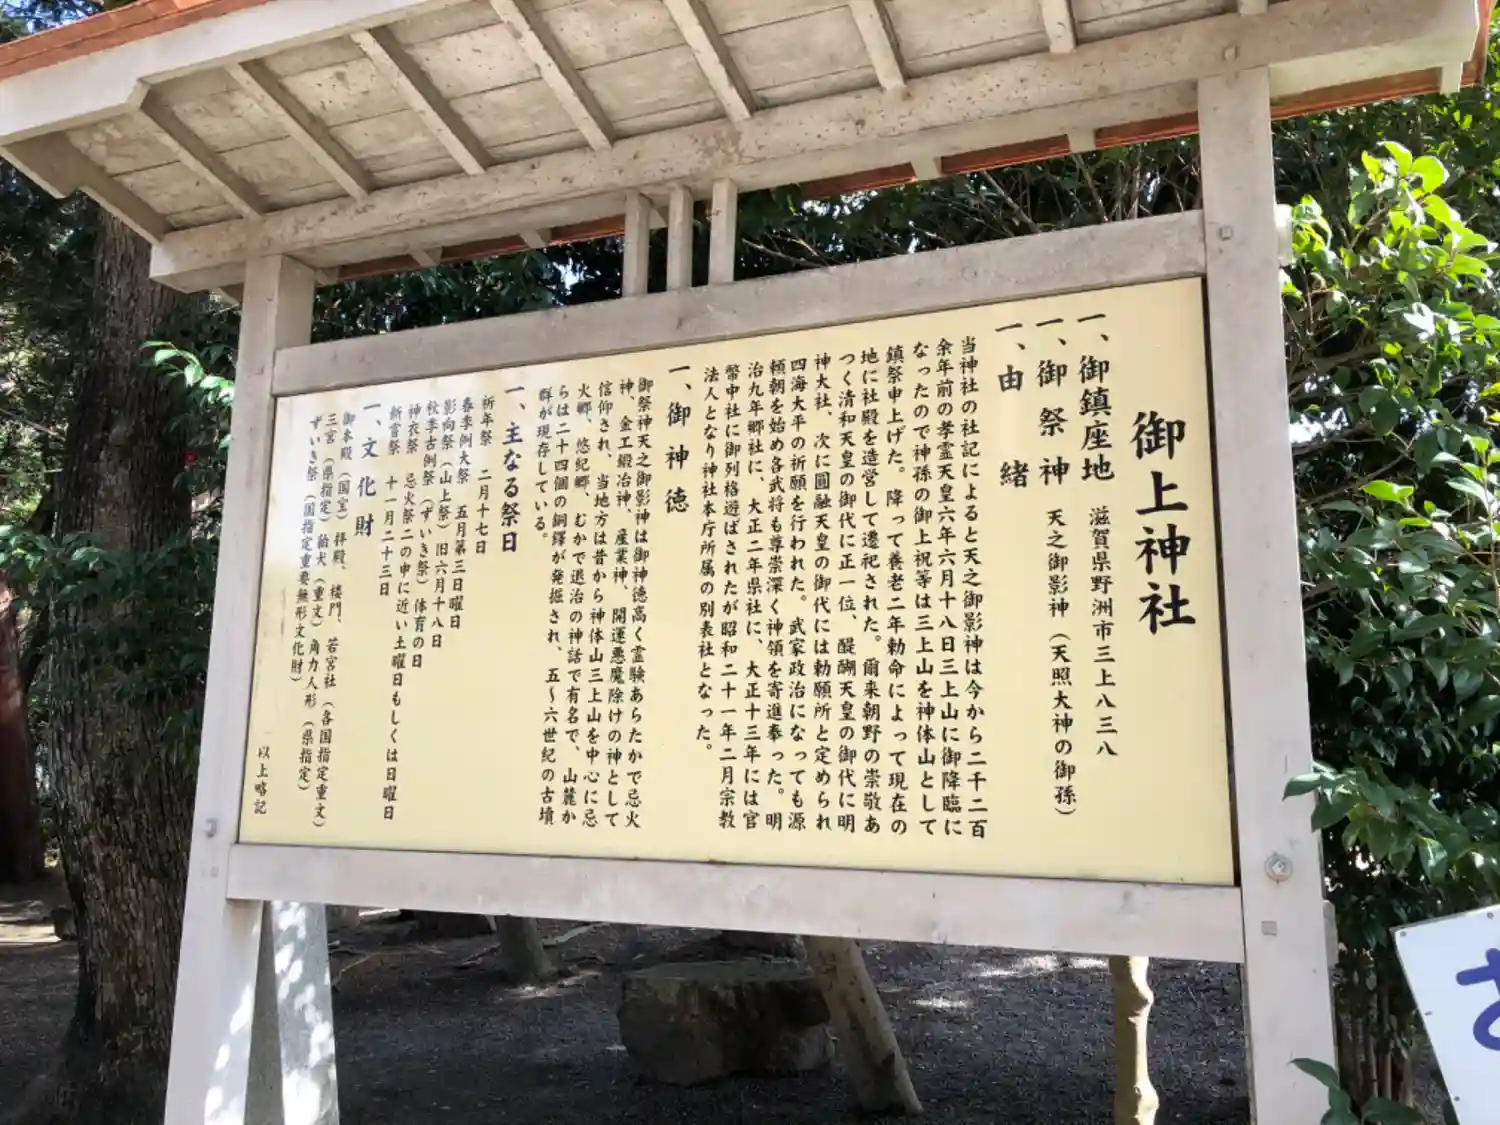 御上神社
一、御鎮座地 滋賀県野洲市三上八三八
一、御祭神 天之御影神（天照大神の御孫）
一、由緒
当神社の社記によると天之御影神は今から二千二百
余年前の孝霊天皇六年六月十八日三上山に御降臨に
なったので神孫の御上祝等は三上山を神体山として
鎮祭申上げた。降って養老二年勅命によって現在の
地に社殿を造営して遷祀された。爾来朝野の崇敬あ
つく清和天皇の御代に正一位、醍醐天皇の御代に明
神大社、次に圓融天皇の御代には勅願所と定められ
四海大平の祈願を行われた。武家政治になっても源
頼朝を始め各武将も尊崇深く神領を寄進奉った。明
治九年郷社に、大正二年県社に、大正十三年には官
幣中社に御列格遊ばされたが昭和二十一年二月宗教
法人となり神社本庁所属の別表社となった。
一、御神徳
御祭神天之御影神は御神徳高く霊験あらたかで忌火
神、金工鍛冶神、産業神、開運悪魔除けの神として
信仰され、当地方は昔から神体山三上山を中心に忌
火郷、悠紀郷、むかで退治の神話で有名で、山麓か
らは二十四個の銅鐸が発掘され、五〜六世紀の古墳
群が現存している。
一、主なる祭日
祈年祭 二月十七日
春季例大祭 五月第三日曜日
影向祭（山上祭）旧六月十八日
秋季古例祭（ずいき祭）体育の日
神衣祭 忌火祭二の申に近い土曜日もしくは日曜日
新嘗祭 十一月二十三日
一、文化財
御本殿（国宝）拝殿、楼門、若宮社（各国指定重文）
三宮（県指定）狛犬（重文）角力人形（県指定）
ずいき祭（国指定重要無形文化財）
以上略記